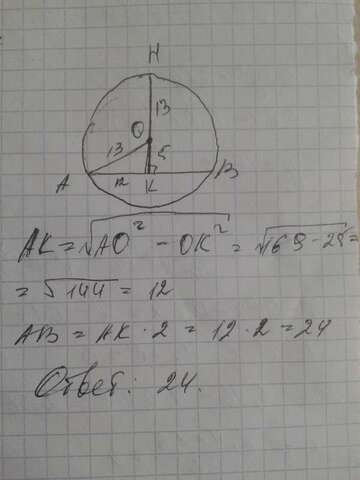 H
13
O
13
5
A
12
K
B
AK = √AO² - OK² = √169 - 25 =
= √144 = 12
AB = AK · 2 = 12 · 2 = 24
Ответ: 24.